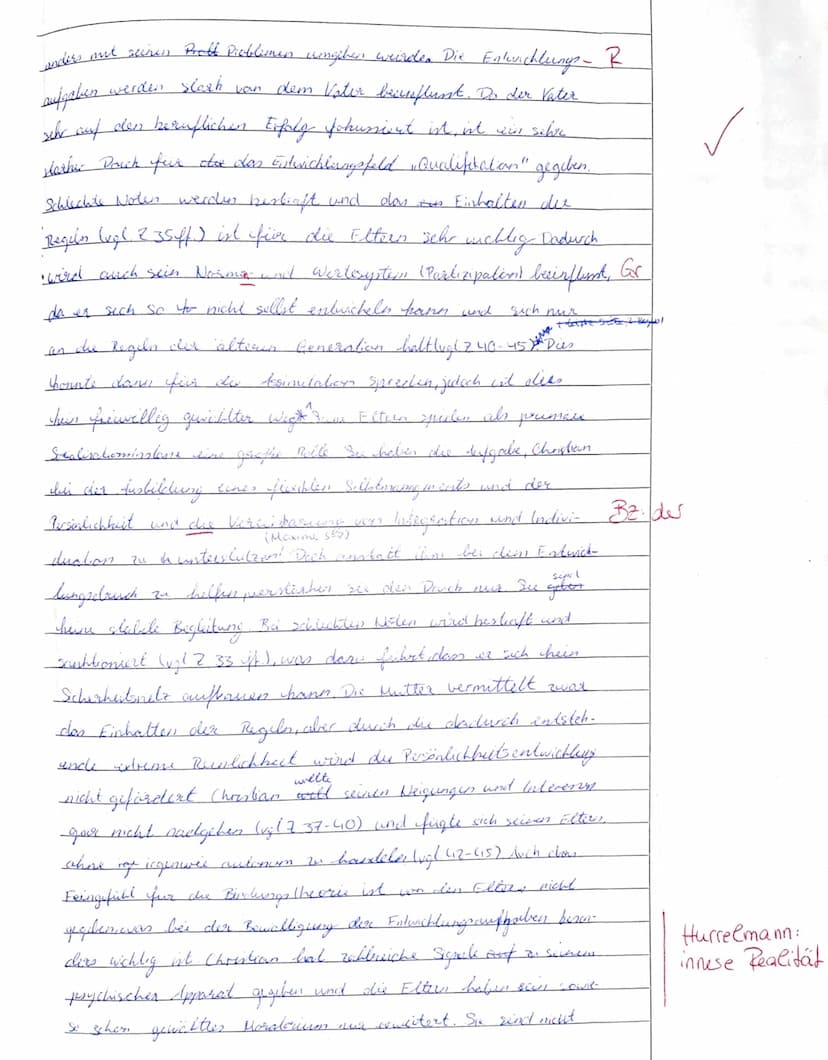 anders mit seinen Problemen umgehen würde. Die Entwicklungs- R
aufgaben werden stark von dem Vater beeinflusst. Da der Vater
sehr auf den beruflichen Erfolg fokussiert ist, ist ein sehr
starker Druck für das Entwicklungsfeld „Qualifikation" gegeben.
Schlechte Noten werden bestraft und das Einhalten der
Regeln (vgl. Z 35ff.) ist für die Eltern sehr wichtig Dadurch
wird auch sein Norma und Wertesystem (Partizipation) beeinflusst, Gr
da er sich so nicht selbst entwickeln kann und sich nur
an die Regeln der älteren Generation hält (vgl Z 40-45) Dies
könnte dann für die Assimilation sprechen, jedoch ist dies
kein freiwillig gewählter Weg Eltern spielen als primäre
Sozialisationsinstanz eine große Rolle Sie haben die Aufgabe, Christian
bei der Ausbildung eines flexiblen Selbstmanagements und der
Persönlichkeit und die Vereinbarung von Integration und Indivi- Bz. der
(Maxime 5)
duation zu unterstützen! Doch anstatt ihm bei dem Entwick-
lungsdruck zu helfen, verstärken sie den Druck nur Sie
keine stabile Begleitung Bei schlechten Noten wird bestraft und
sanktioniert (vgl Z 33 ff.), was dazu führt, dass er sich kein
Sicherheitsnetz aufbauen kann. Die Mutter vermittelt zwar
das Einhalten der Regeln, aber durch die dadurch entsteh-
ende extreme wird die Persönlichkeitsentwicklung
nicht gefördert Christian wollte seinen Neigungen und Interessen
gar nicht nachgehen (vgl Z 37-40) und fügte sich seinen Eltern,
ohne irgenwie autonom zu handeln (vgl 42-45) Auch das
Feingefühl für die Bindungstheorie ist von den Eltern nicht
gegeben, was bei der Bewältigung der Entwicklungsaufgaben beson-
ders wichtig ist Christian hat zahlreiche Signale zu seinem
psychischen Apparat gegeben und die Eltern haben sein sowie-
so schon gewähltes Moratorium nur erweitert. Sie sind nicht
Hurrelmann:
innere Realität